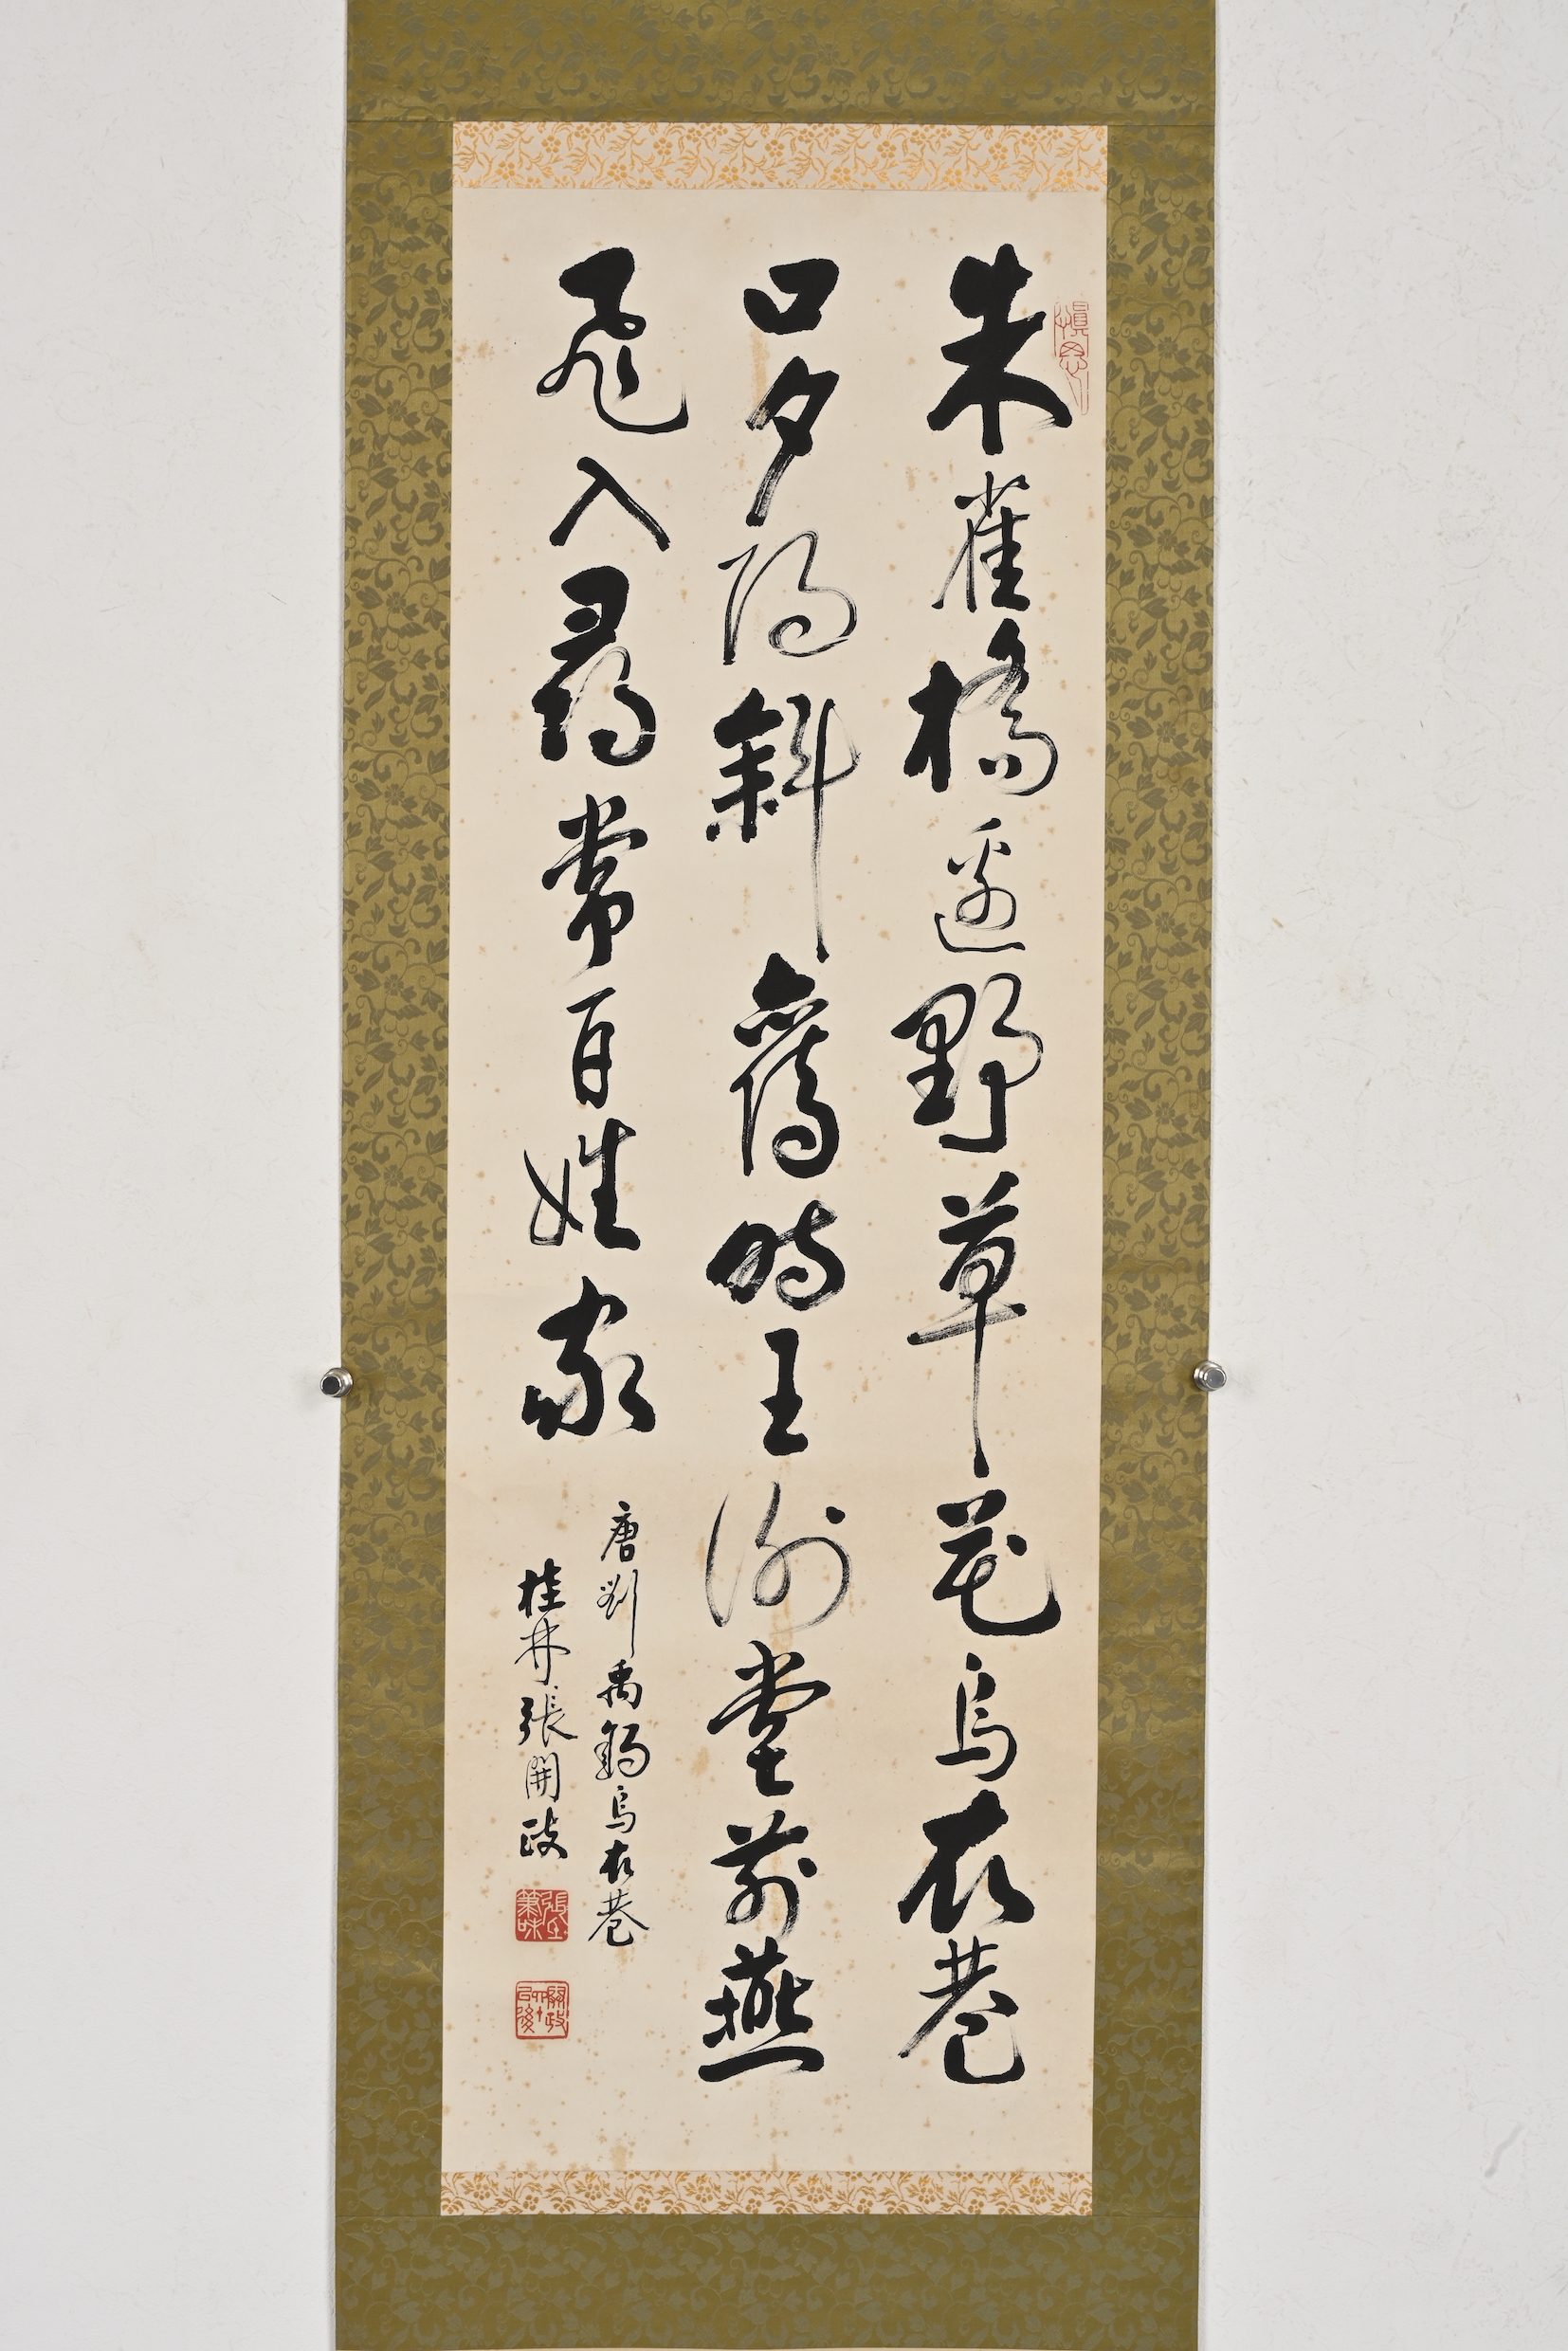 朱雀橋邊野草花烏衣巷
口夕陽斜舊時王謝堂前燕
飛入尋常百姓家
唐劉禹錫烏衣巷
桂林張開政
慎思